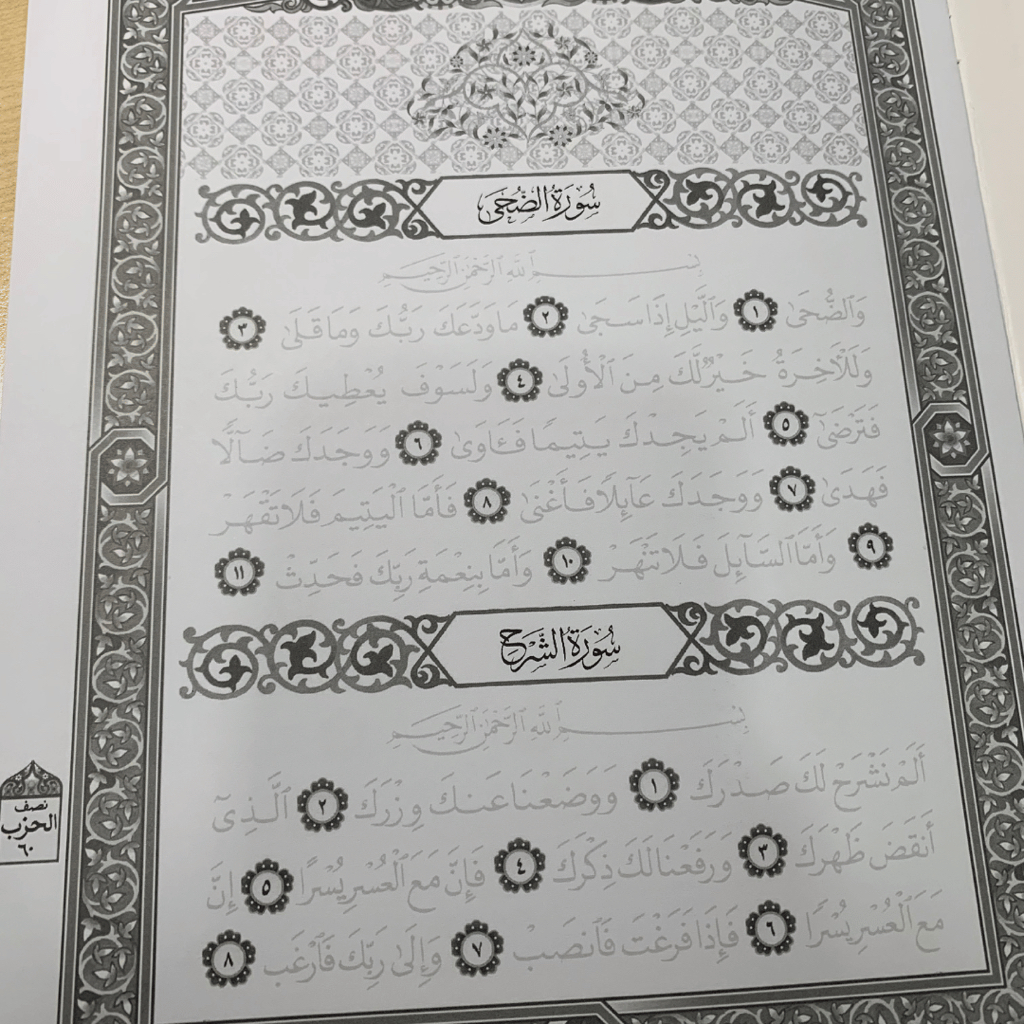 سُورَةُ الضُّحَى
بِسْمِ اللَّهِ الرَّحْمَٰنِ الرَّحِيمِ
وَالضُّحَىٰ ١ وَالَّيْلِ إِذَا سَجَىٰ ٢ مَا وَدَّعَكَ رَبُّكَ وَمَا قَلَىٰ ٣
وَلَلْأَخِرَةُ خَيْرٌ لَّكَ مِنَ الْأُولَىٰ ٤ وَلَسَوْفَ يُعْطِيكَ رَبُّكَ
فَتَرْضَىٰٓ ٥ أَلَمْ يَجِدْكَ يَتِيمًا فَـَٔاوَىٰ ٦ وَوَجَدَكَ ضَآلًّا
فَهَدَىٰ ٧ وَوَجَدَكَ عَآئِلًا فَأَغْنَىٰ ٨ فَأَمَّا الْيَتِيمَ فَلَا تَقْهَرْ
٩ وَأَمَّا السَّآئِلَ فَلَا تَنْهَرْ ١٠ وَأَمَّا بِنِعْمَةِ رَبِّكَ فَحَدِّثْ ١١
سُورَةُ الشَّرْحِ
بِسْمِ اللَّهِ الرَّحْمَٰنِ الرَّحِيمِ
أَلَمْ نَشْرَحْ لَكَ صَدْرَكَ ١ وَوَضَعْنَا عَنكَ وِزْرَكَ ٢ الَّذِىٓ
أَنقَضَ ظَهْرَكَ ٣ وَرَفَعْنَا لَكَ ذِكْرَكَ ٤ فَإِنَّ مَعَ الْعُسْرِ يُسْرًا ٥ إِنَّ
مَعَ الْعُسْرِ يُسْرًا ٦ فَإِذَا فَرَغْتَ فَانصَبْ ٧ وَإِلَىٰ رَبِّكَ فَارْغَب ٨
نصف
الحزب
٦٠